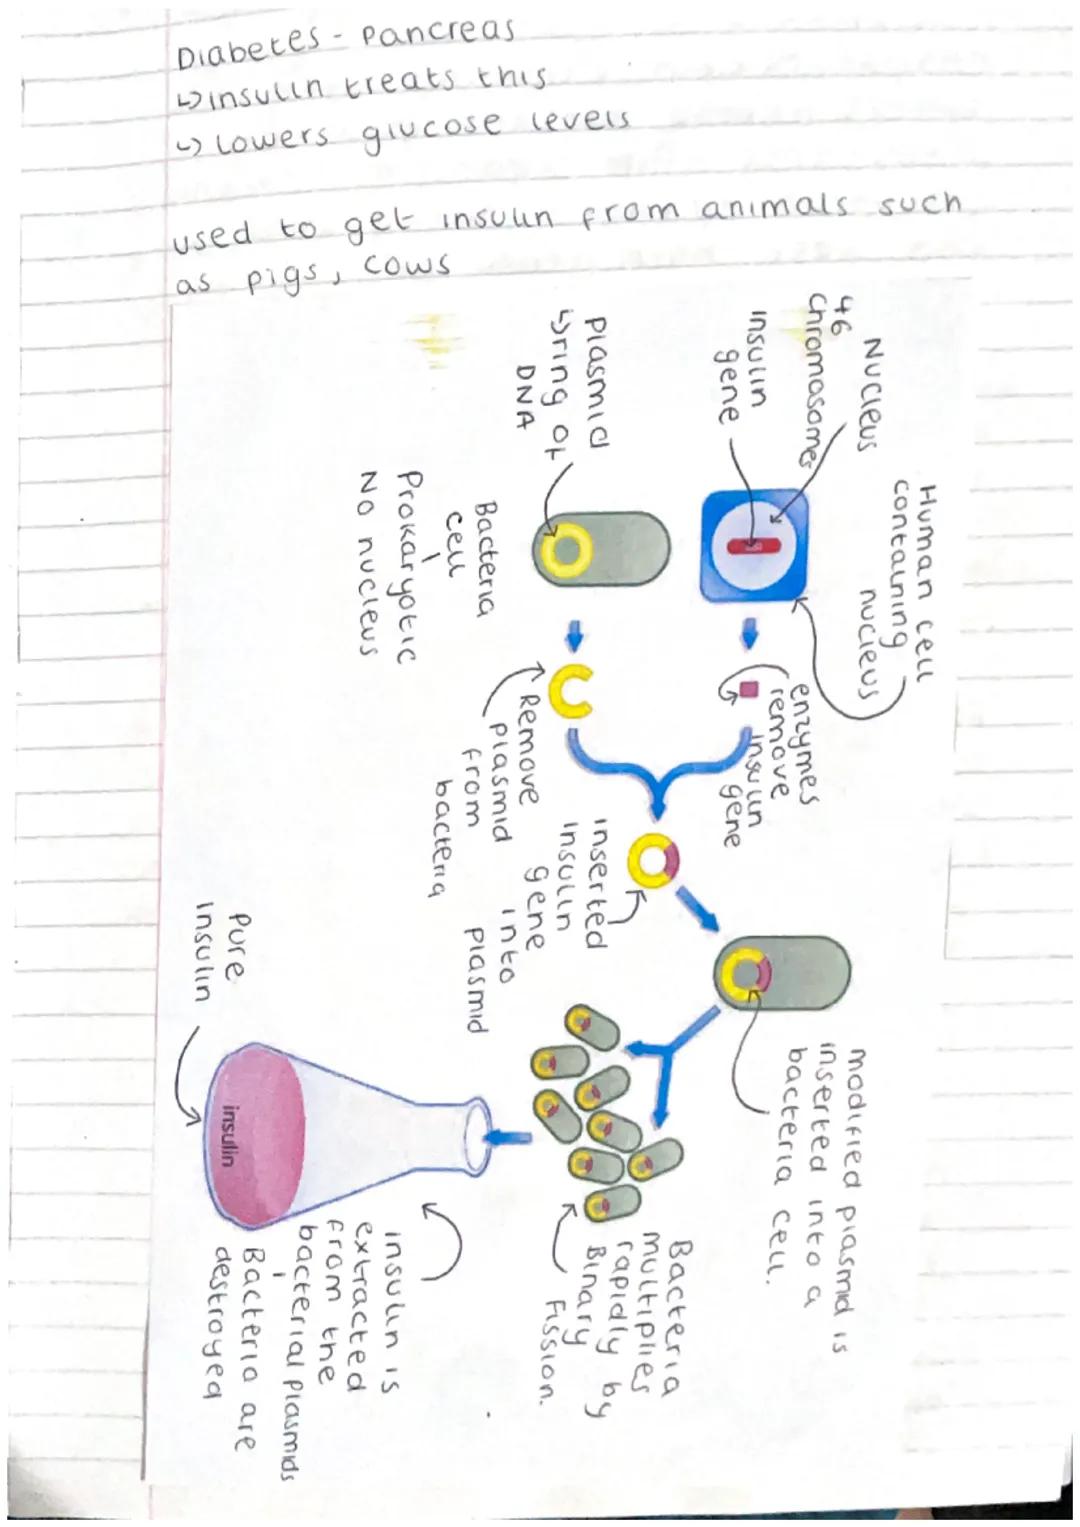 Diabetes - Pancreas
↳ insulin treats this
↳ Lowers glucose levels
used to get insulin from animals such
as pigs, cows
Human cell
containing
nucleus
Nucleus
46
chromosomes
insulin
gene
enzymes
remove
insulin
gene
Plasmid
↳ring of
DNA
Bacteria
cell
Prokaryotic
No nucleus
Remove
plasmid
from
bacteria
inserted
insulin
gene
into
plasmid
modified plasmid is
inserted into a
bacteria cell.
Bacteria
multiplies
rapidly by
Binary
Fission.
insulin is
extracted
from the
bacterial plasmids
Bacteria are
destroyed
Pure
insulin
insulin